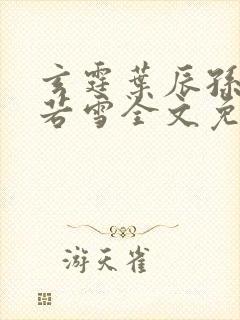 玄霆葉辰孫
若雪全文免
游天雀